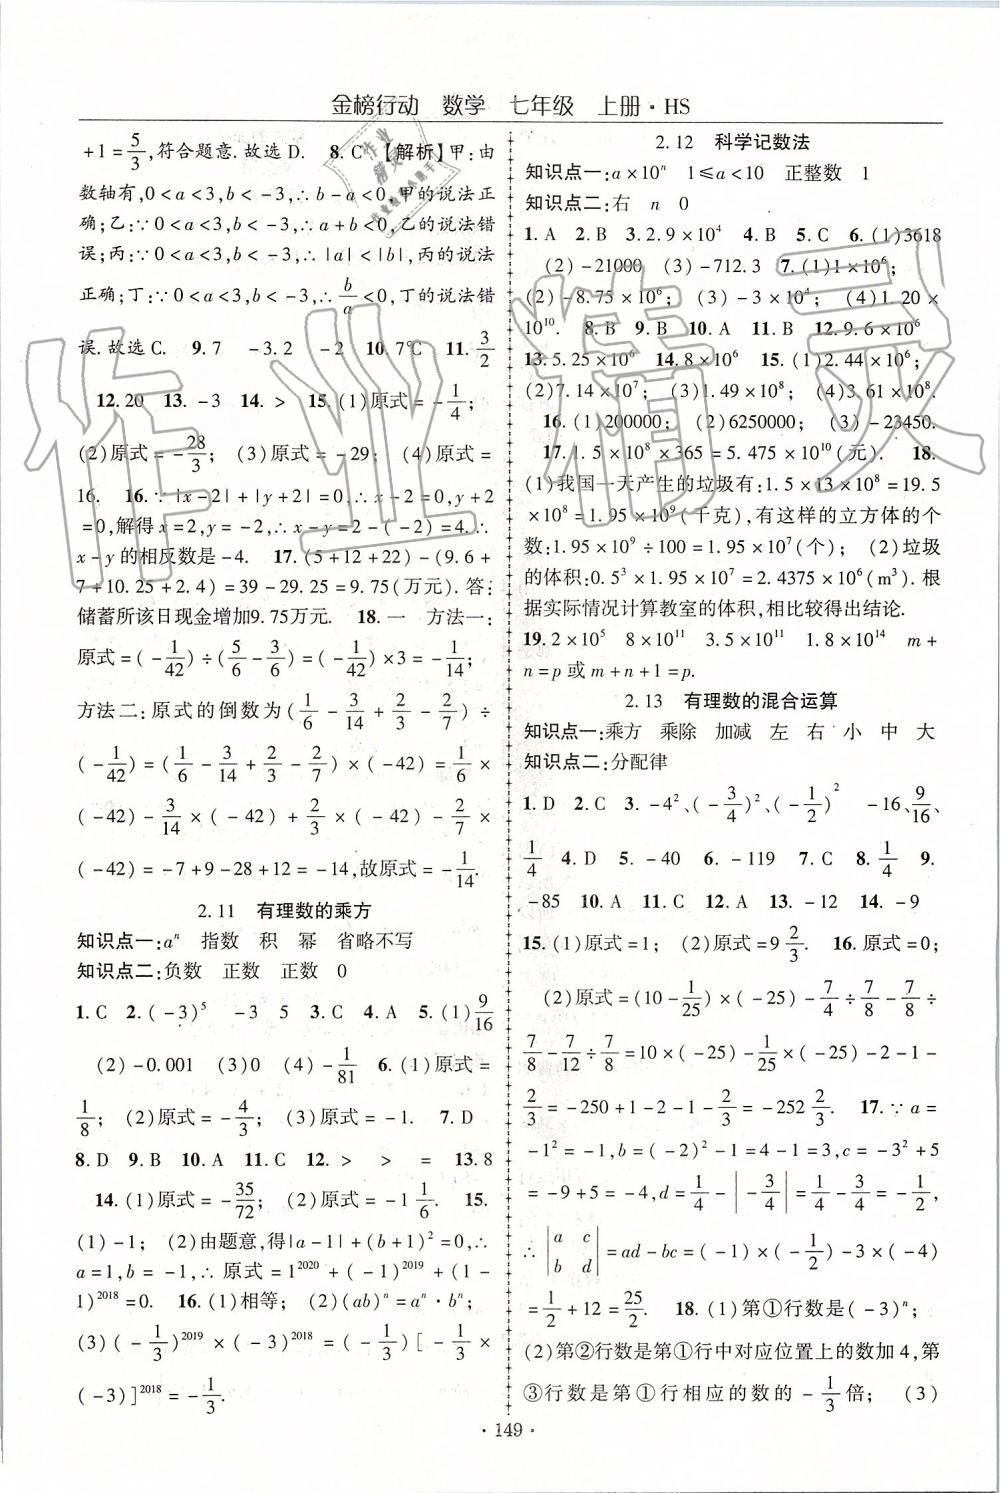 金榜行动 数学 七年级 上册·HS
+1=5/3,符合题意.故选D. 8.C 【解析】甲:由
数轴有,0<a<3,b<-3,∴b-a<0,甲的说法正
确;乙:∵0<a<3,b<-3,∴a+b<0,乙的说法错
误;丙:∵0<a<3,b<-3,∴|a|<|b|,丙的说法
正确;丁:∵0<a<3,b<-3,∴b/a<0,丁的说法错
误.故选C. 9.7 -3.2 -2 10.7℃ 11.3/2
12.20 13.-3 14.> 15.(1)原式=-1/4;
(2)原式=-28/3; (3)原式=-29; (4)原式=
16. 16.∵|x-2|+|y+2|=0,∴x-2=0,y+2
=0,解得x=2,y=-2,∴x-y=2-(-2)=4.∴
x-y的相反数是-4. 17.(5+12+22)-(9.6+
7+10.25+2.4)=39-29.25=9.75(万元).答:
储蓄所该日现金增加9.75万元. 18.一 方法一:
原式=(-1/42)÷(5/6-3/6)=(-1/42)×3=-1/14;
方法二:原式的倒数为(1/6-3/14+2/3-2/7)÷
(-1/42)=(1/6-3/14+2/3-2/7)×(-42)=1/6×
(-42)-3/14×(-42)+2/3×(-42)-2/7×
(-42)=-7+9-28+12=-14,故原式=-1/14.
2.11 有理数的乘方
知识点一:aⁿ 指数 积 幂 省略不写
知识点二:负数 正数 正数 0
1.C 2.(-3)⁵ -3 5 3.C 4.A 5.(1)9/16
(2)-0.001 (3)0 (4)-1/81 6.(1)原式=
1/8; (2)原式=-4/3; (3)原式=-1. 7.D
8.D 9.B 10.A 11.C 12.> > = 13.8
14.(1)原式=-35/72; (2)原式=-1 1/6. 15.
(1)-1; (2)由题意,得|a-1|+(b+1)²=0,∴
a=1,b=-1,∴原式=1²⁰²⁰+(-1)²⁰¹⁹+(1-
1)²⁰¹⁸=0. 16.(1)相等; (2)(ab)ⁿ=aⁿ·bⁿ;
(3)(-1/3)²⁰¹⁹×(-3)²⁰¹⁸=(-1/3)[-1/3×
(-3)]²⁰¹⁸=-1/3.
2.12 科学记数法
知识点一:a×10ⁿ 1≤a<10 正整数 1
知识点二:右 n 0
1.A 2.B 3.2.9×10⁴ 4.B 5.C 6.(1)3618
(2)-21000 (3)-712.3 7.(1)1×10⁶;
(2)-8.75×10⁶; (3)-3×10⁴; (4)1.20×
10¹⁰. 8.B 9.B 10.A 11.B 12.9.6×10⁶
13.5.25×10⁶ 14.8×10⁶ 15.(1)2.44×10⁶;
(2)7.14×10⁷; (3)1.49×10⁸; (4)3.61×10⁸.
16.(1)200000; (2)6250000; (3)-23450.
17.1.5×10⁸×365=5.475×10¹⁰(元). 18.
(1)我国一天产生的垃圾有:1.5×13×10⁸=19.5
×10⁸=1.95×10⁹(千克),有这样的立方体的个
数:1.95×10⁹÷100=1.95×10⁷(个); (2)垃圾
的体积:0.5³×1.95×10⁷=2.4375×10⁶(m³).根
据实际情况计算教室的体积,相比较得出结论.
19.2×10⁵ 8×10¹¹ 3.5×10¹¹ 1.8×10¹⁴ m+
n=p或m+n+1=p.
2.13 有理数的混合运算
知识点一:乘方 乘除 加减 左 右 小 中 大
知识点二:分配律
1.D 2.C 3.-4²、(-3/4)²、(-1/2)² -16、9/16、
1/4 4.D 5.-40 6.-119 7.C 8.1/4 9.
-85 10.A 11.C 12.A 13.-12 14.-9
15.(1)原式=1; (2)原式=9 2/3. 16.原式=0;
(2)原式=(10-1/25)×(-25)-7/4÷7/8-7/8÷
7/8-7/12÷7/8=10×(-25)-1/25×(-25)-2-1-
2/3=-250+1-2-1-2/3=-252 2/3. 17.∵a=
-1²=-1,b=(-2)²-1=4-1=3,c=-3²+5
=-9+5=-4,d=1/4-|-3/4|=1/4-3/4=-1/2,
∴|a c b d|=ad-bc=(-1)×(-1/2)-3×(-4)
=1/2+12=25/2. 18.(1)第①行数是(-3)ⁿ;
(2)第②行数是第①行中对应位置上的数加4,第
③行数是第①行相应的数的-1/3倍; (3)
·149·
作业精灵